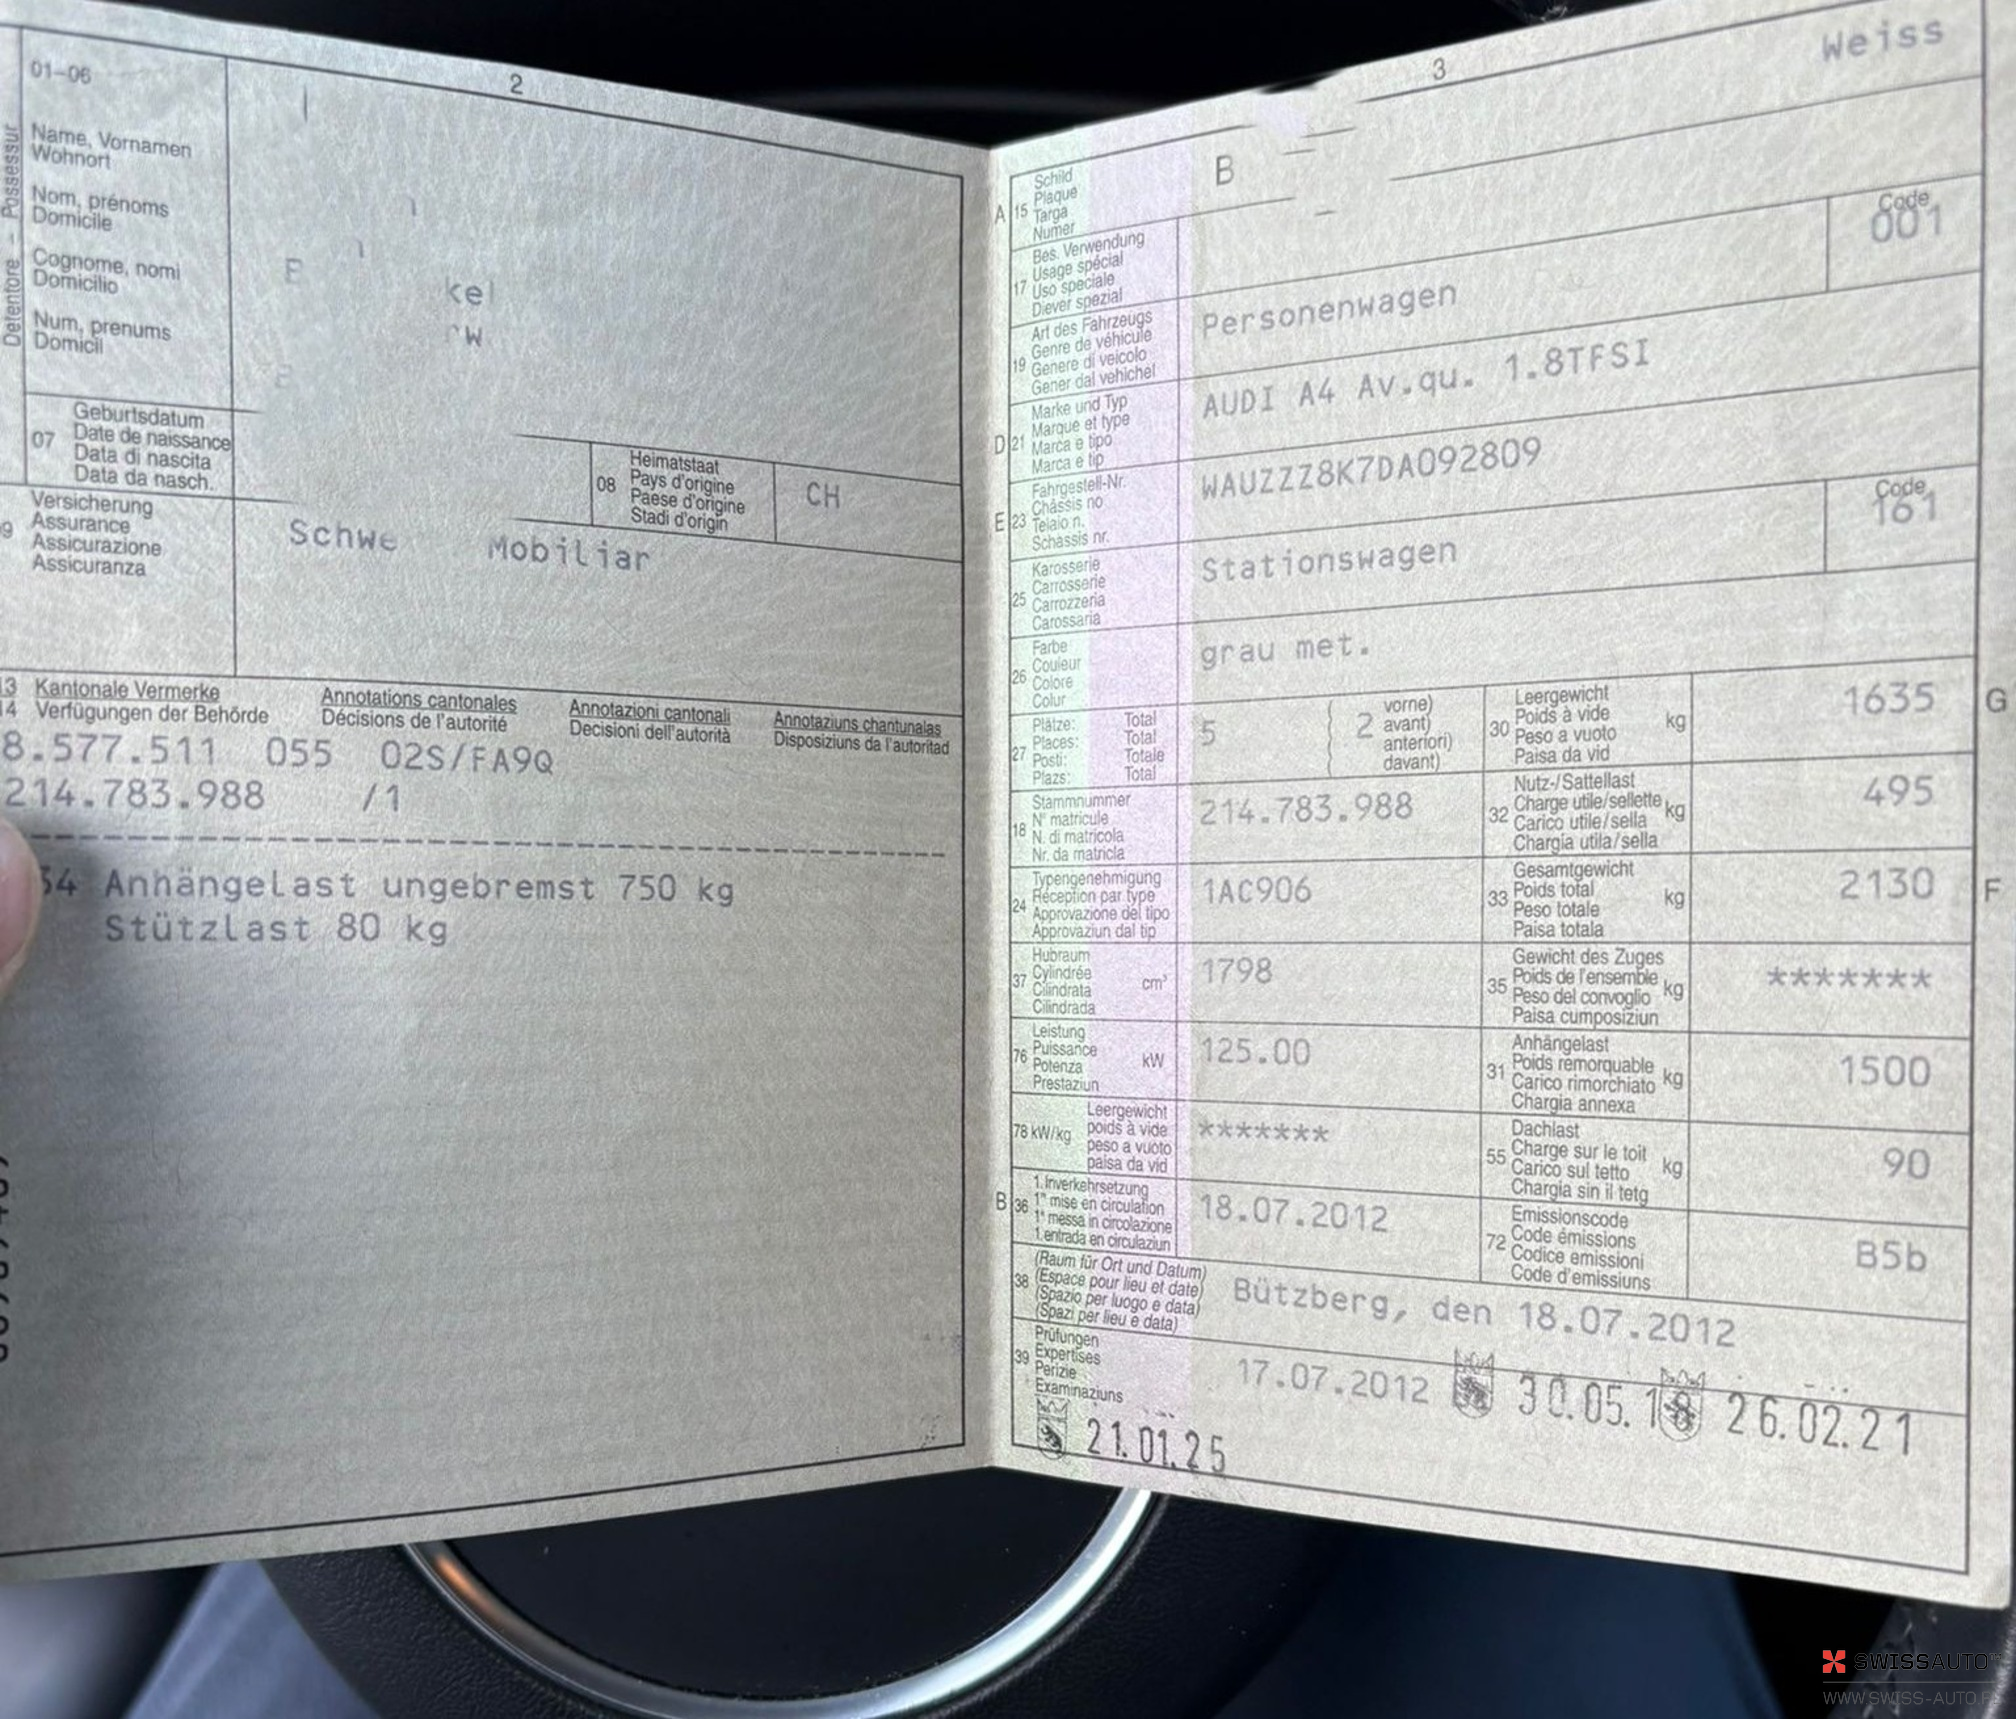 2
01-06
Name, Vornamen
Wohnort
Nom, prénoms
Domicile
Cognome, nomi
Domicilio
Num, prenums
Domicil
Detentore - Possessur
07
Geburtsdatum
Date de naissance
Data di nascita
Data da nasch.
08
Heimatstaat
Pays d'origine
Paese d'origine
Stadi d'origin
CH
Versicherung
Assurance
Assicurazione
Assicuranza
Schwe Mobiliar
13 Kantonale Vermerke Annotations cantonales Annotazioni cantonali Annotaziuns chantunalas
14 Verfügungen der Behörde Décisions de l'autorité Decisioni dell'autorità Disposiziuns da l'autoritad
8.577.511 055 02S/FA9Q
214.783.988 /1
Anhängelast ungebremst 750 kg
Stützlast 80 kg
3
Weiss
A 15
Schild
Plaque
Targa
Numer
B
17
Bes. Verwendung
Usage spécial
Uso speciale
Diever spezial
Code
001
19
Art des Fahrzeugs
Genre de véhicule
Genere di veicolo
Gener dal vehichel
Personenwagen
D 21
Marke und Typ
Marque et type
Marca e tipo
Marca e tip
AUDI A4 Av.qu. 1.8TFSI
E 23
Fahrgestell-Nr.
Châssis no
Telaio n.
Schassis nr.
WAUZZZ8K7DA092809
25
Karosserie
Carrosserie
Carrozzeria
Carossaria
Stationswagen
Code
161
26
Farbe
Couleur
Colore
Colur
grau met.
27
Plätze: Total
Places: Total
Posti: Totale
Plazs: Total
5
2
vorne)
avant)
anteriori)
davant)
30
Leergewicht
Poids à vide
Peso a vuoto
Paisa da vid
kg
1635
G
18
Stammnummer
N° matricule
N. di matricola
Nr. da matricla
214.783.988
32
Nutz-/Sattellast
Charge utile/sellette
Carico utile/sella
Chargia utila/sella
kg
495
24
Typengenehmigung
Réception par type
Approvazione del tipo
Approvaziun dal tip
1AC906
33
Gesamtgewicht
Poids total
Peso totale
Paisa totala
kg
2130
F
37
Hubraum
Cylindrée
Cilindrata
Cilindrada
cm³
1798
35
Gewicht des Zuges
Poids de l'ensemble
Peso del convoglio
Paisa cumposiziun
kg
*******
76
Leistung
Puissance
Potenza
Prestaziun
kW
125.00
31
Anhängelast
Poids remorquable
Carico rimorchiato
Chargia annexa
kg
1500
78 kW/kg
Leergewicht
poids à vide
peso a vuoto
paisa da vid
*******
55
Dachlast
Charge sur le toit
Carico sul tetto
Chargia sin il tetg
kg
90
B 36
1. Inverkehrsetzung
1re mise en circulation
1a messa in circolazione
1. entrada en circulaziun
18.07.2012
72
Emissionscode
Code émissions
Codice emissioni
Code d'emissiuns
B5b
38
(Raum für Ort und Datum)
(Espace pour lieu et date)
(Spazio per luogo e data)
(Spazi per lieu e data)
Bützberg, den 18.07.2012
39
Prüfungen
Expertises
Perizie
Examinaziuns
17.07.2012 30.05.18 26.02.21
21.01.25
SWISSAUTO